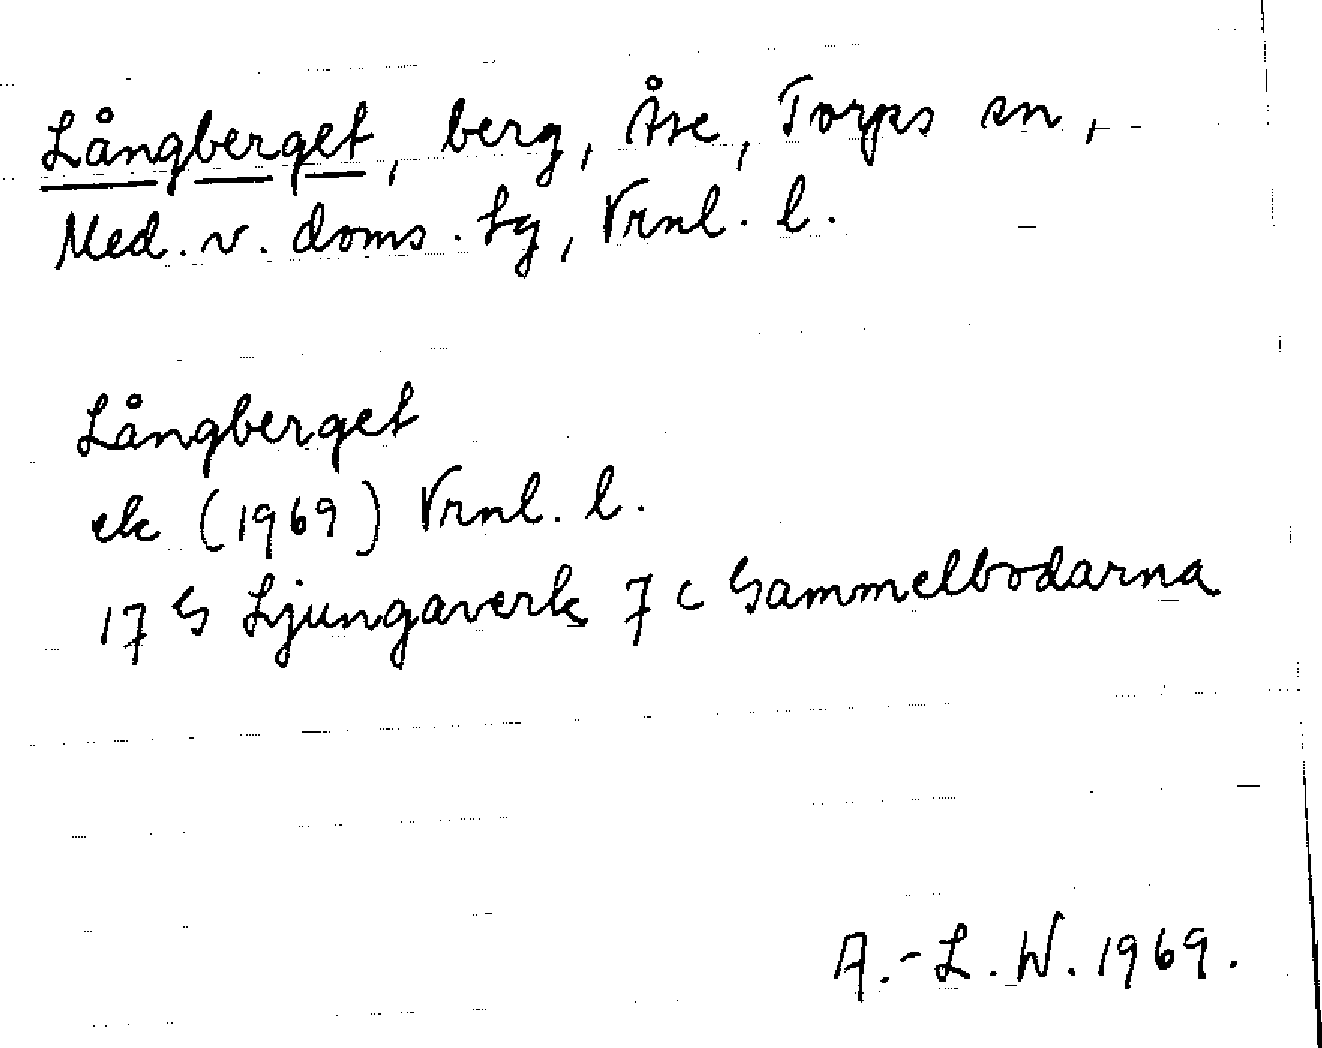 Långberget, berg, Åse, Torps sn,
Med. v. doms. tg, Vrnl. l.
Långberget
ek (1969) Vrnl. l.
17 G Ljungaverk 7 c Gammelbodarna
A.-L. W. 1969.